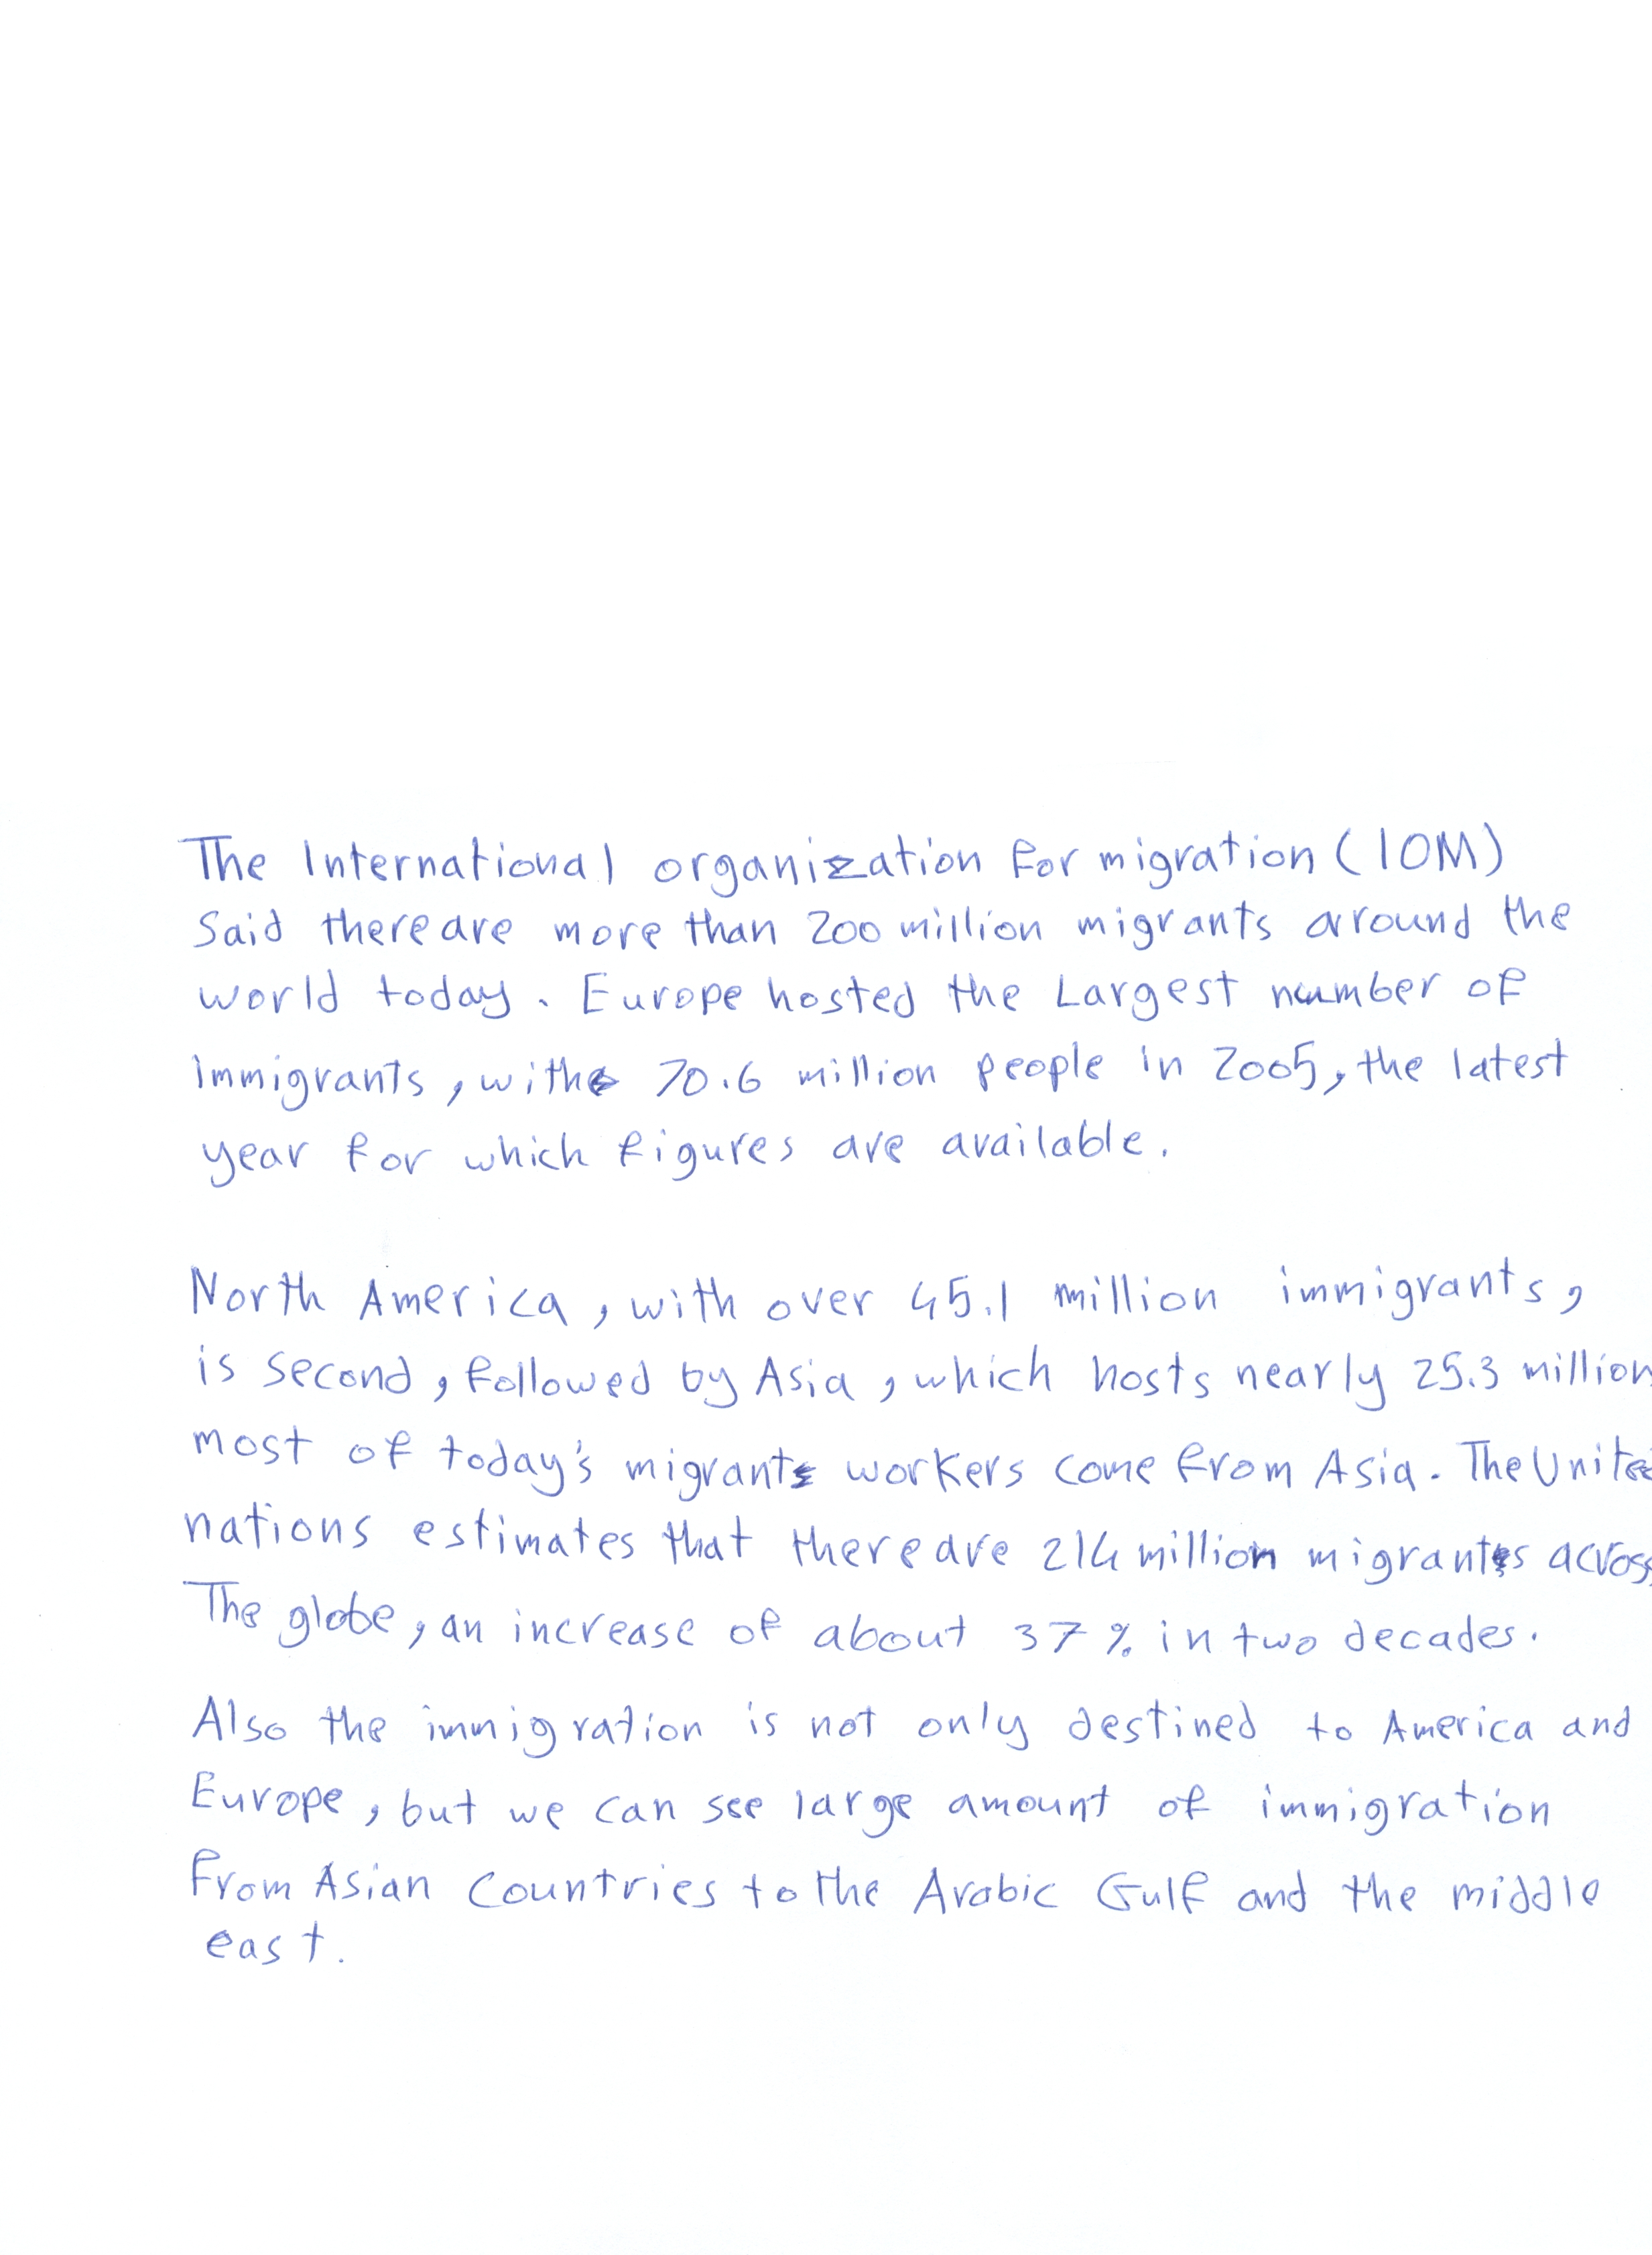 The International organization for migration (IOM)
Said there are more than 200 million migrants around the
world today. Europe hosted the Largest number of
immigrants, with 70.6 million people in 2005, the latest
year for which figures are available.
North America, with over 45.1 million immigrants,
is second, followed by Asia, which hosts nearly 25.3 million
most of today's migrants workers come from Asia. The Unite
nations estimates that there are 214 million migrants across
The globe, an increase of about 37 % in two decades.
Also the immigration is not only destined to America and
Europe, but we can see large amount of immigration
from Asian Countries to the Arabic Gulf and the middle
east.